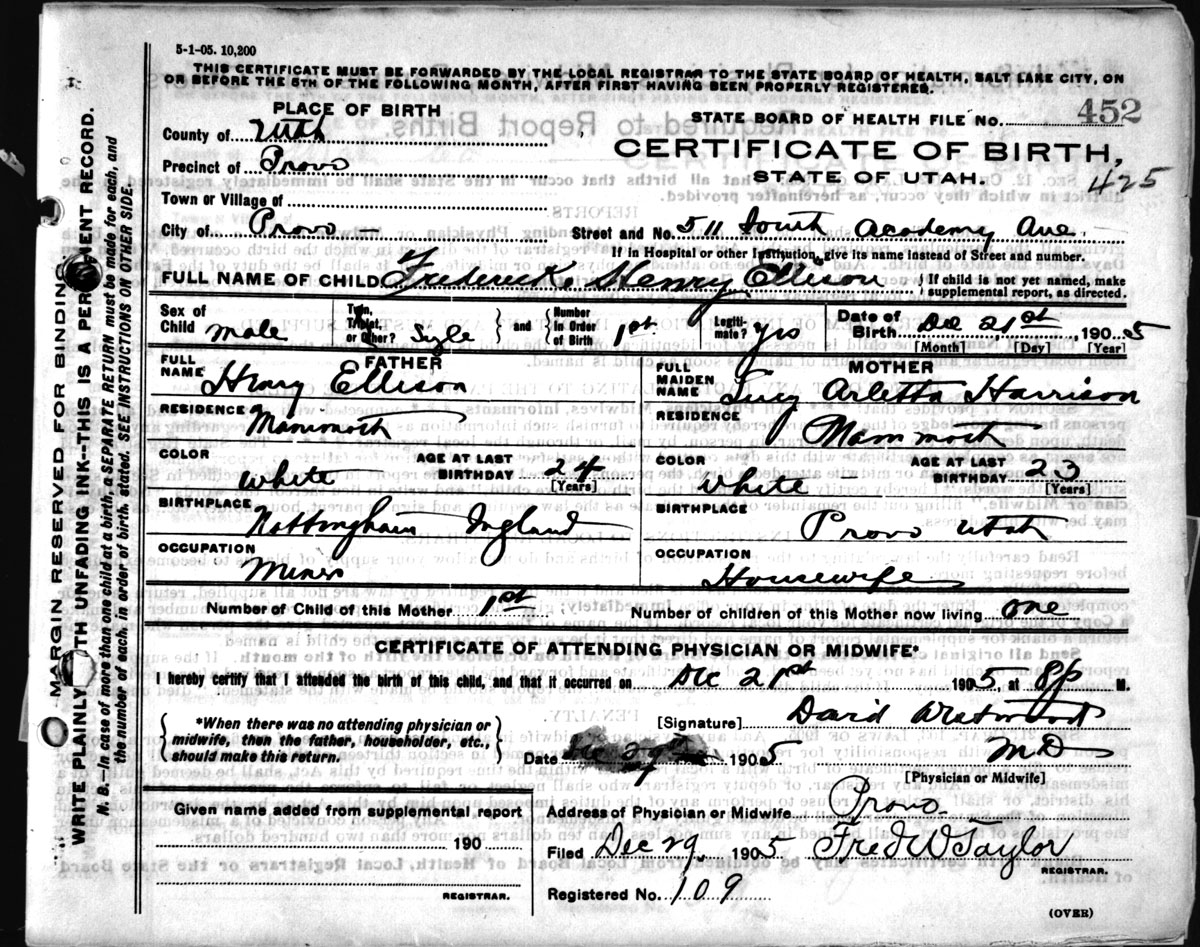 5-1-05. 10,200
THIS CERTIFICATE MUST BE FORWARDED BY THE LOCAL REGISTRAR TO THE STATE BOARD OF HEALTH, SALT LAKE CITY, ON
OR BEFORE THE 5TH OF THE FOLLOWING MONTH, AFTER FIRST HAVING BEEN PROPERLY REGISTERED.
PLACE OF BIRTH
County of Utah
Precinct of Provo
Town or Village of
City of Provo
STATE BOARD OF HEALTH FILE NO. 452
CERTIFICATE OF BIRTH,
STATE OF UTAH.
425
Street and No. 511 South Academy Ave
If in Hospital or other Institution, give its name instead of Street and number.
FULL NAME OF CHILD Frederick Henry Ellison { If child is not yet named, make supplemental report, as directed.
Sex of Child male Twin, Triplet, or Other? Sgle } and { Number In Order of Birth 1st Legiti-mate? yes Date of Birth Dec 21st 1905
[Month] [Day] [Year]
FATHER
FULL NAME Henry Ellison
RESIDENCE Mammoth
COLOR white AGE AT LAST BIRTHDAY 24
[Years]
BIRTHPLACE Nottingham Ingland
OCCUPATION Miner
MOTHER
FULL MAIDEN NAME Lucy Arletta Harrison
RESIDENCE Mammoth
COLOR white AGE AT LAST BIRTHDAY 23
[Years]
BIRTHPLACE Provo Utah
OCCUPATION Housewife
Number of Child of this Mother 1st Number of children of this Mother now living one
CERTIFICATE OF ATTENDING PHYSICIAN OR MIDWIFE*
I hereby certify that I attended the birth of this child, and that it occurred on Dec 21st 1905, at 8p M.
*When there was no attending physician or
midwife, then the father, householder, etc.,
should make this return.
[Signature] David Westwood
Date Dec 29th 1905 MD
[Physician or Midwife]
Given name added from supplemental report
190
REGISTRAR.
Address of Physician or Midwife Provo
Filed Dec 29 1905 Fred W Taylor
REGISTRAR.
Registered No. 109
(OVER)
MARGIN RESERVED FOR BINDING
WRITE PLAINLY WITH UNFADING INK--THIS IS A PERMANENT RECORD.
N. B.--In case of more than one child at a birth, a SEPARATE RETURN must be made for each, and
the number of each, in order of birth, stated. SEE INSTRUCTIONS ON OTHER SIDE.